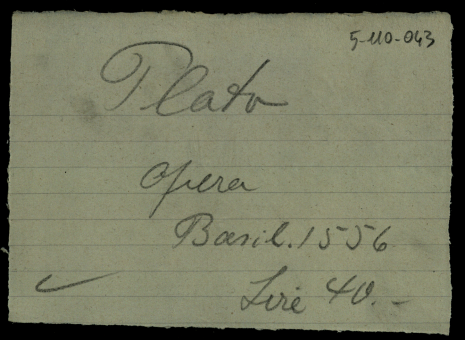 5-110-043
Plato
Opera
Basil. 1556
Lire 40.-